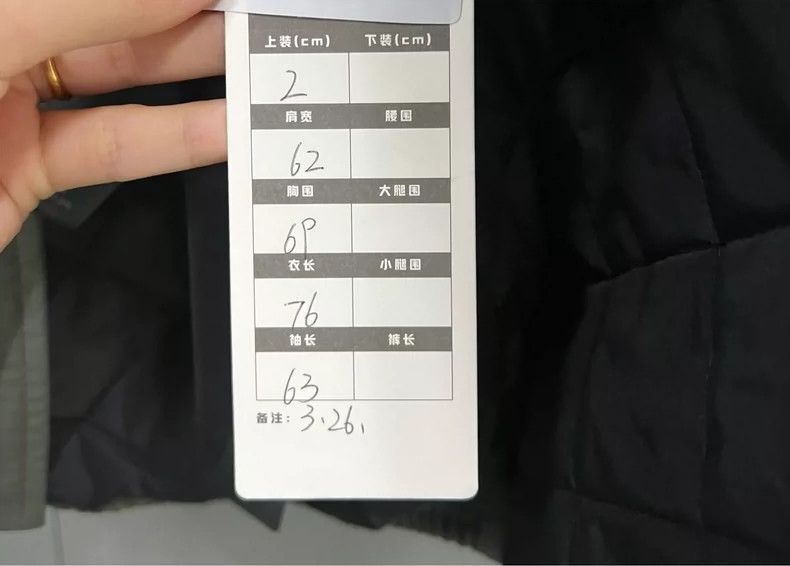 上装(cm) 下装(cm)
2
肩宽 腰围
62
胸围 大腿围
69
衣长 小腿围
76
袖长 裤长
63
备注: 3.26.